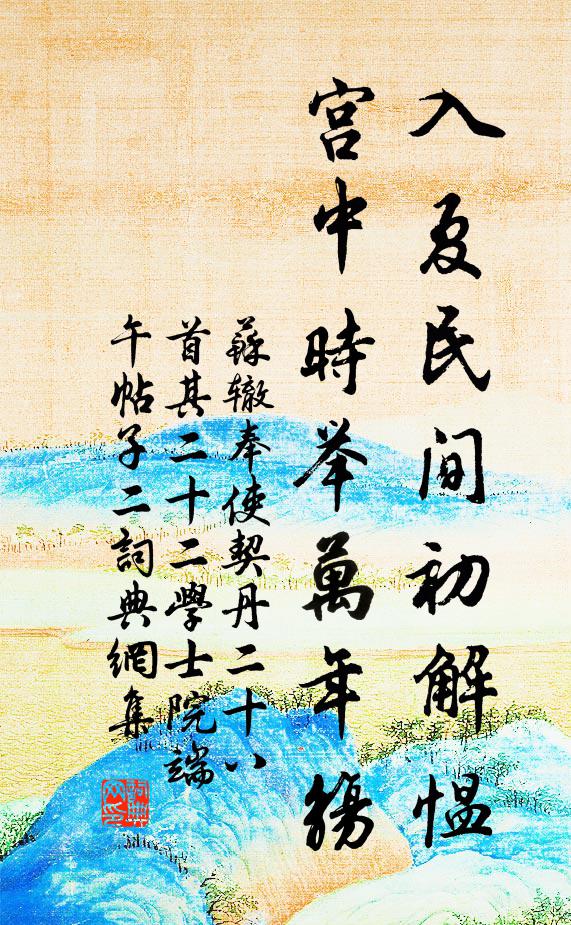 入夏民间初解愠
宫中時举萬年觴
蘇辙奉使契丹二十八
首其二十二學士院端
午帖子二詞典網集